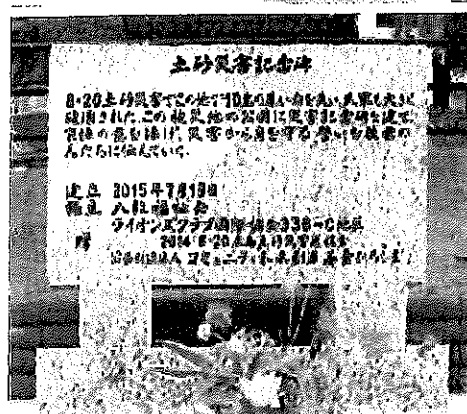 土砂災害記念碑
8・20土砂災害でこの地で10名の尊い命を失い、民家も大きく
破壊された。この被災地の公園に災害記念碑を建て
哀悼の意を捧げ、災害から身を守る
人たちに伝えていく。
建立 2015年7月19日
八木福祉会
ライオンズクラブ国際協会336-C地区
2014 8・20広島土砂災害
コミュニティ未来創造基金ひろしま